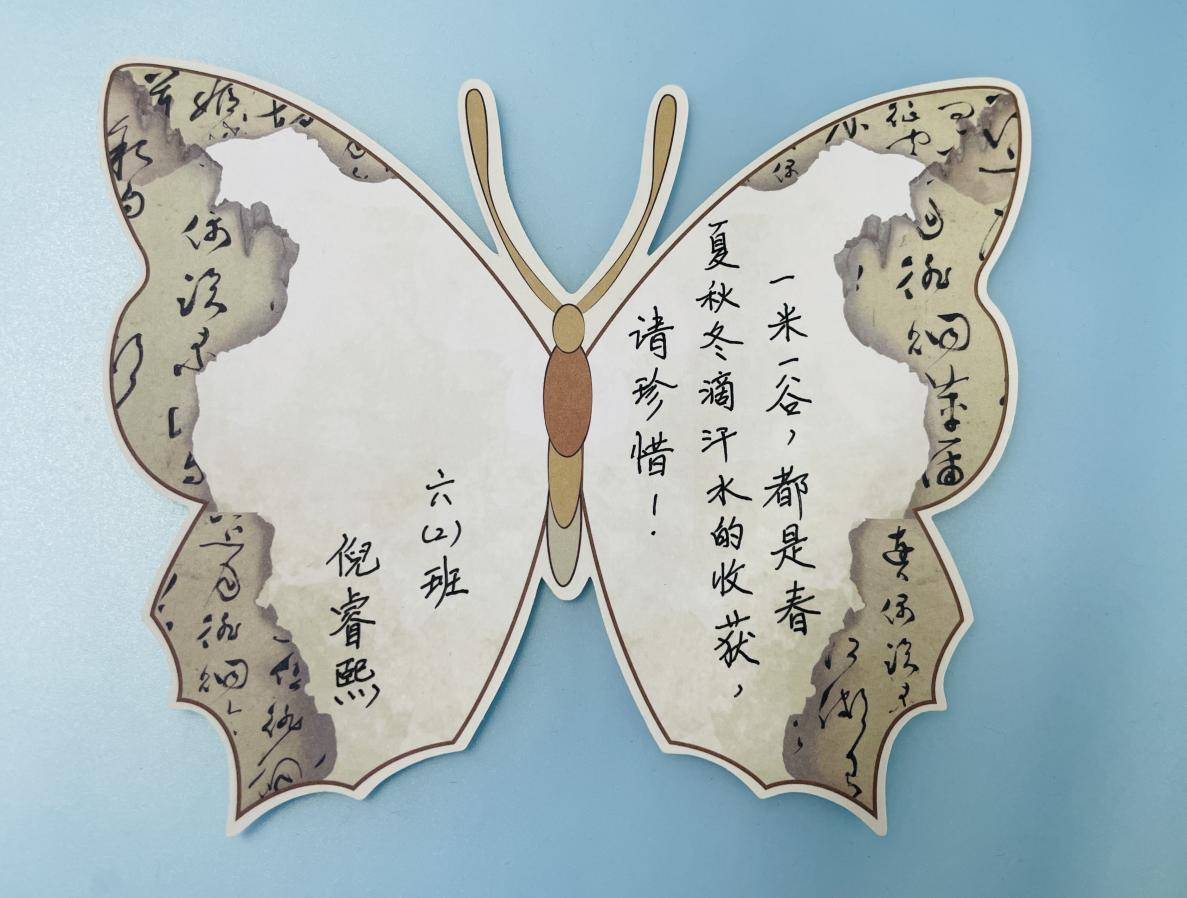 一米一谷，都是春
夏秋冬滴汗水的收获，
请珍惜！
六（2）班
倪睿熙